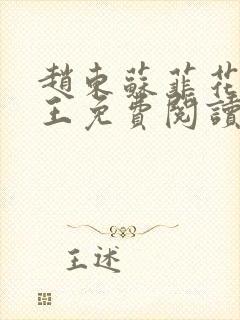 趙東蘇韮花
王免費閱讀
王述